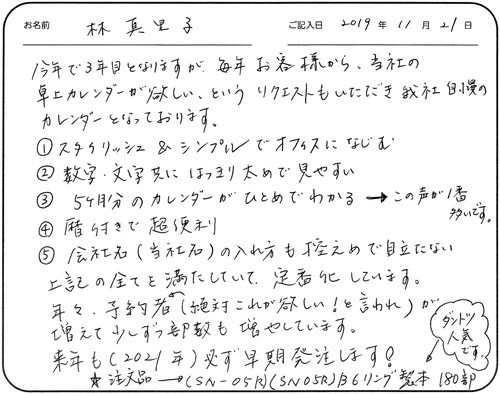 お名前 林 真里子 ご記入日 2019年 11月 21日
今年で3年目となりますが、毎年 お客様から、当社の
卓上カレンダーが欲しい、という リクエストもいただき 我社 自慢の
カレンダーとなっております。
① スタイリッシュ & シンプルでオフィスになじむ
② 数字・文字共に はっきり太めで見やすい
③ 5ヶ月分のカレンダーがひとめでわかる → この声が1番
多いです。
④ 暦付きで超便利
⑤ 会社名(当社名)の入れ方も控えめで目立たない
上記の全てを満たしていて、定番化しています。
年々、予約者(絶対これが欲しい!と言われ)が
増えて少しずつ部数も増やしています。
ダントツ
人気
です。
来年も(2021年)必ず早期発注します!
★注文品→(SN-05R)(SN05R)B6リング製本 180部